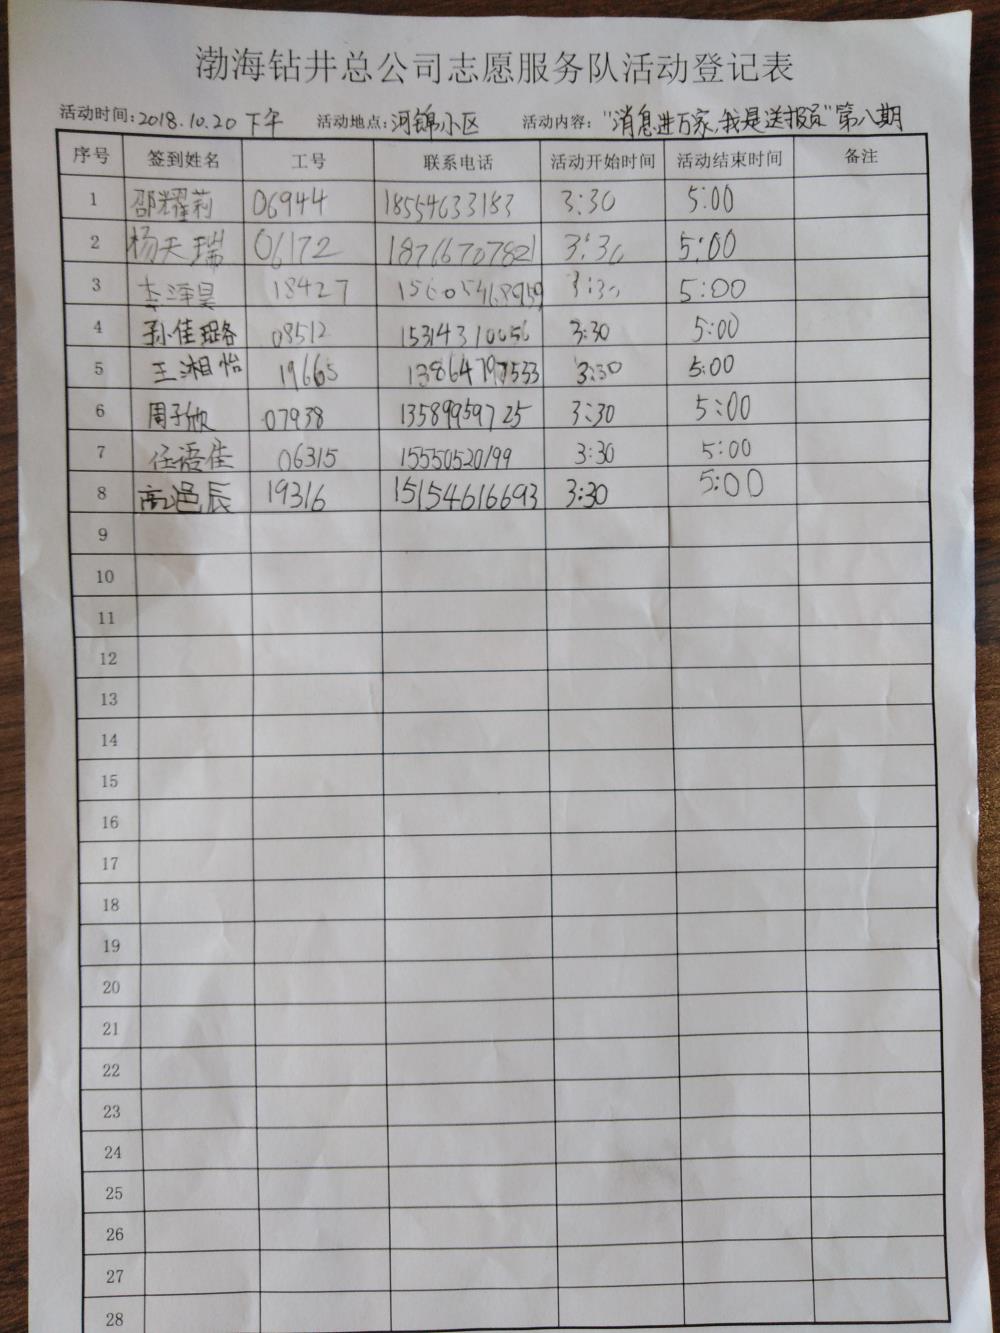 渤海钻井总公司志愿服务队活动登记表
活动时间:2018.10.20下午 活动地点:河锦小区 活动内容:"消息进万家,我是送报员"第八期
序号 签到姓名 工号 联系电话 活动开始时间 活动结束时间 备注
1 邵耀莉 06944 18554633183 3:30 5:00
2 杨天瑞 06172 18766707821 3:30 5:00
3 李泽昊 18427 15605468959 3:30 5:00
4 孙佳璐 08512 15314310656 3:30 5:00
5 王湘怡 19665 13864797533 3:30 5:00
6 周子欣 07938 13589959725 3:30 5:00
7 任语佳 06315 15550520199 3:30 5:00
8 高邑辰 19316 15154616693 3:30 5:00
9
10
11
12
13
14
15
16
17
18
19
20
21
22
23
24
25
26
27
28